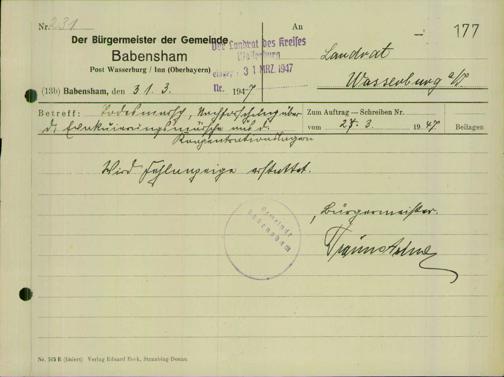 Nr. 231
An
177
Der Bürgermeister der Gemeinde
Babensham
Post Wasserburg / Inn (Oberbayern)
Der Landrat des Kreises
Wasserburg
31 MRZ. 1947
Nr.
Landrat
Wasserburg a/I.
(13b) Babensham, den 31. 3. 1947
Betreff: Todesmarsch, Nachforschung über
d. Evakuierungsmärsche aus d.
Konzentrationslagern
Zum Auftrag — Schreiben Nr.
vom 27. 3. 1947
Beilagen
Wird Fehlanzeige erstattet.
Bürgermeister.
Gemeinde
Babensham
Nr. 515 E (liniert) Verlag Eduard Beck, Straubing-Donau